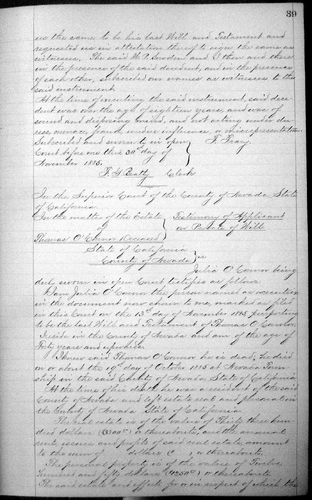 39
on the same to be his last Will and Testament and
requested us in attestation thereof to sign the same as
witnesses. The said and I then and there
in the presence of the said decedent, and in the presence
of each other, subscribed our names as witnesses to the
said instrument.
At the time of executing the said instrument, said dece
dent was over the age of eighteen years, and was of
sound and disposing mind, and not acting under du
ress menace, fraud, undue influence, or misrepresentation
Subscribed and sworn to in open
Court before me this 30th day of
November 1885.
Clerk
In the Superior Court of the County of Nevada State
of California
In the matter of the Estate
of
Thomas O'Connor Deceased
Testimony of Applicant
on Probate of Will
State of California
County of Nevada ss
Julia O'Connor being
duly sworn in open Court testifies as follows.
I am Julia O'Connor the person named as executrix
in the document now shown to me marked as filed
in this Court on the 13th day of November 1885 purporting
to be the last Will and Testament of Thomas O'Connor
I reside in the County of Nevada and am of the age of
forty years and upwards.
I knew said Thomas O'Connor he is dead, he died
on or about the 19th day of October 1885 at Nevada Town
ship in the said County of Nevada, State of California.
At the time of his death he was a resident of the said
County of Nevada and left estate real and personal in
the County of Nevada State of California
The real estate is of the value of Thirty three hun
dred dollars or thereabouts, and the annual
rents issues and profits of said real estate amount
to the sum of dollars or thereabouts.
The personal property is of the value of Twelve
hundred and fifty dollars or thereabouts.
The said estate and effects for or in respect of which the